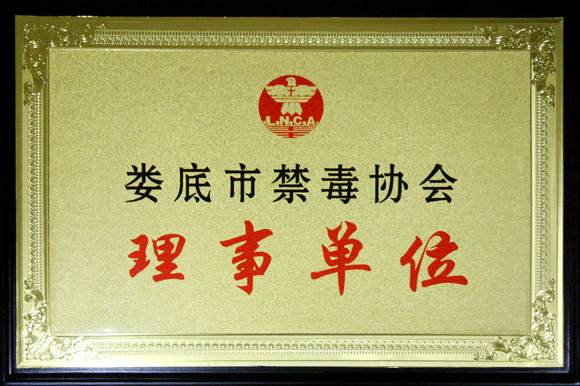 L.N.C.A.
娄底市禁毒协会
理事单位